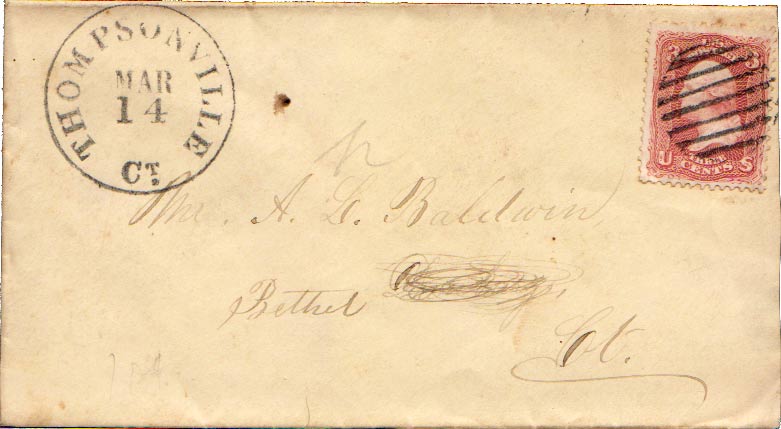 THOMPSONVILLE
MAR
14
CT.
3 3
U THREE CENTS S
Mr. A. L. Baldwin,
Bethel
Ct.